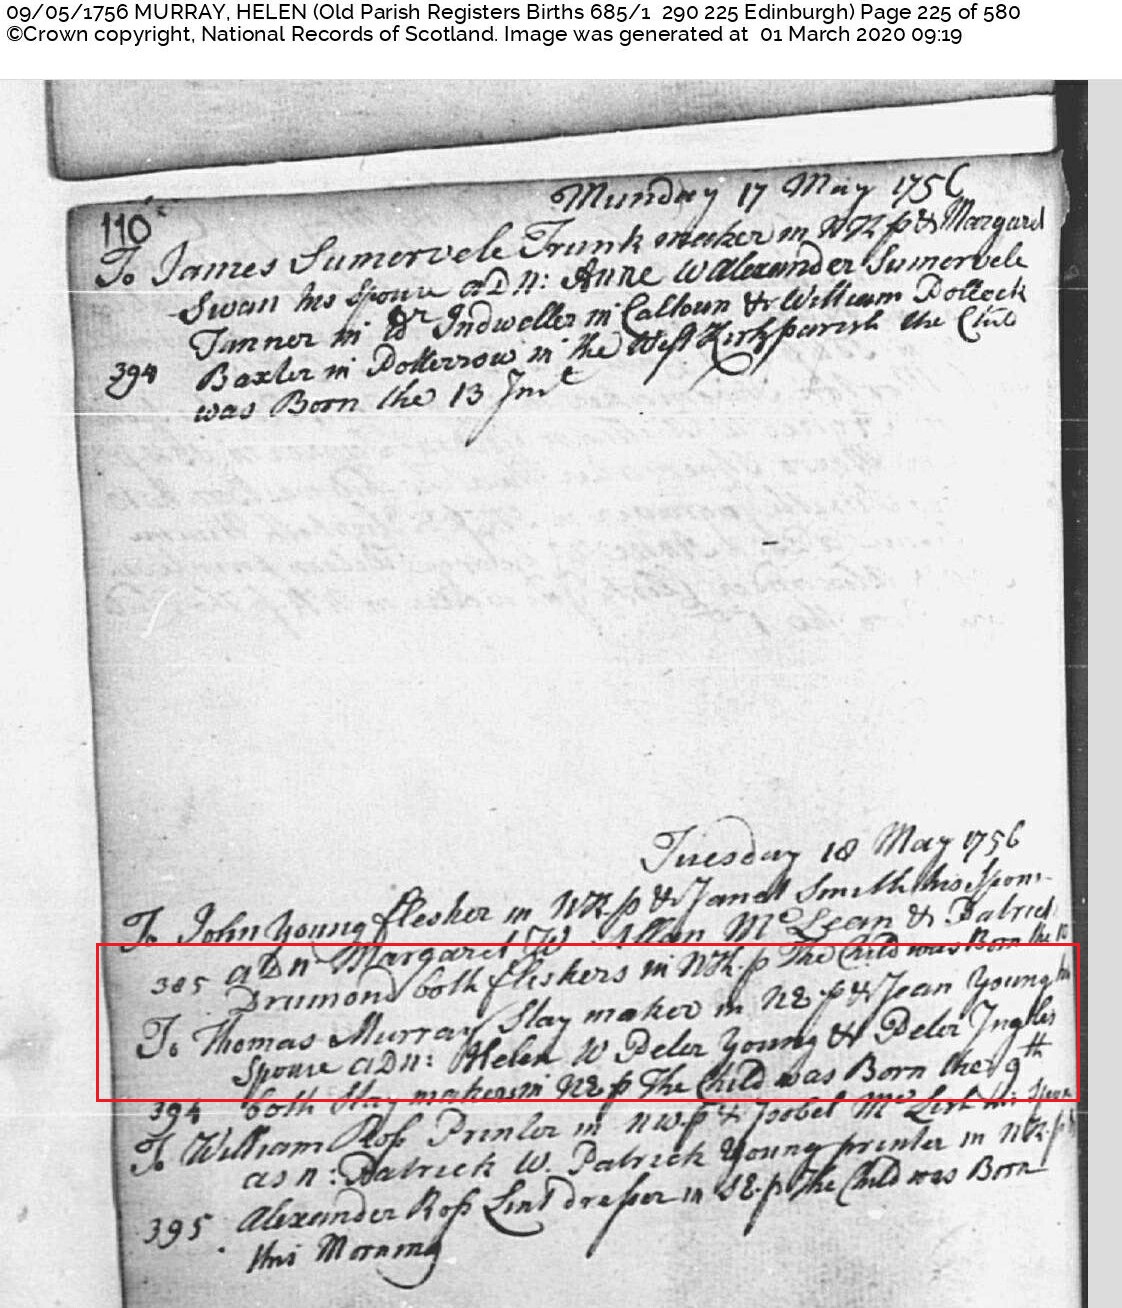 09/05/1756 MURRAY, HELEN (Old Parish Registers Births 685/1 290 225 Edinburgh) Page 225 of 580
©Crown copyright, National Records of Scotland. Image was generated at 01 March 2020 09:19
Munday 17 May 1756
110
To James Sumervele Trunk maker in NK p & Margaret
Swan his Spouse a D n: Anne W Alexander Sumervele
Tanner in Indweller in Calloun & William Pollock
394 Baxter in Potterrow in the West Kirk parish the Child
was Born the 13 Inst
Tuesday 18 May 1756
To John Young flesher in NK p & Janet Smith his Spous
385 a D n Margaret W Allan McLean & Patrick
Drumond both fleshers in NK p The Child was Born the 10
To Thomas Murray Stay maker in NE p & Jean Young his
Spouse a D n: Helen W Peter Young & Peter Inglis
394 both Stay makers in NE p The Child was Born the 9th
To William Ross Printer in NW p & Isobel his Spous
a S n: Patrick W. Patrick Young printer in NK p &
395 Alexander Ross Lint dresser in SE p The Child was Born
this Morning